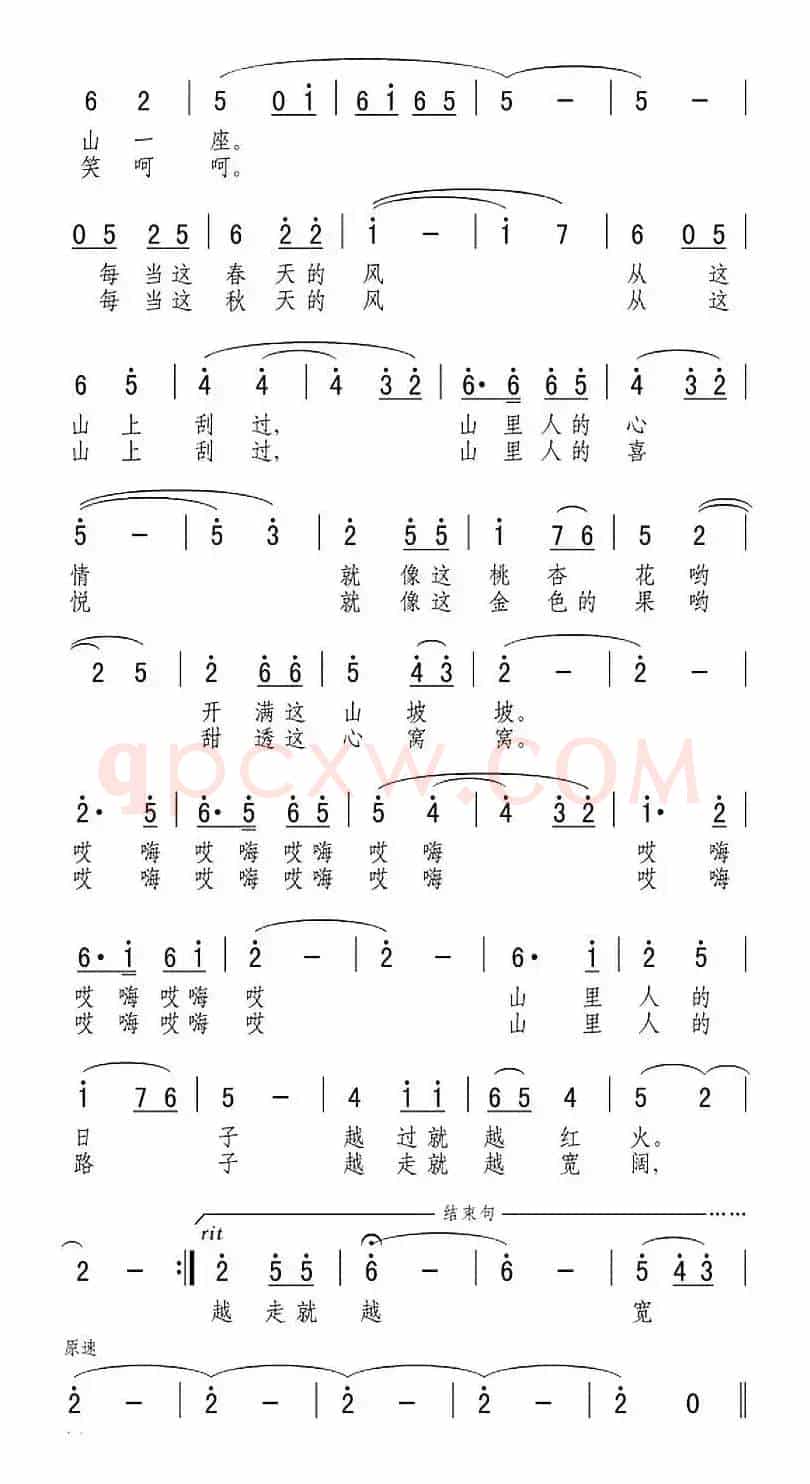 6 2 | 5 0 i | 6 i 6 5 | 5 – | 5 – |
山 一 座。
笑 呵 呵。
0 5 2 5 | 6 2 2 | i – | i 7 | 6 0 5 |
每 当 这 春 天 的 风 从 这
每 当 这 秋 天 的 风 从 这
6 5 | 4 4 | 4 3 2 | 6· 6 6 5 | 4 3 2 |
山 上 刮 过, 山 里 人 的 心
山 上 刮 过, 山 里 人 的 喜
5 – | 5 3 | 2 5 5 | i 7 6 | 5 2 |
情 就 像 这 桃 杏 花 哟
悦 就 像 这 金 色 的 果 哟
2 5 | 2 6 6 | 5 4 3 | 2 – | 2 – |
开 满 这 山 坡 坡。
甜 透 这 心 窝 窝。
qpcxw.COM
2· 5 | 6· 5 6 5 | 5 4 | 4 3 2 | i· 2 |
哎 嗨 哎 嗨 哎 嗨 哎 嗨 哎 嗨
哎 嗨 哎 嗨 哎 嗨 哎 嗨 哎 嗨
6· i 6 i | 2 – | 2 – | 6· i | 2 5 |
哎 嗨 哎 嗨 哎 山 里 人 的
哎 嗨 哎 嗨 哎 山 里 人 的
i 7 6 | 5 – | 4 i i | 6 5 4 | 5 2 |
日 子 越 过 就 越 红 火。
路 子 越 走 就 越 宽 阔,
结束句
rit
2 – :| 2 5 5 | 6 – | 6 – | 5 4 3 |
越 走 就 越 宽
原速
2 – | 2 – | 2 – | 2 – | 2 0 ‖